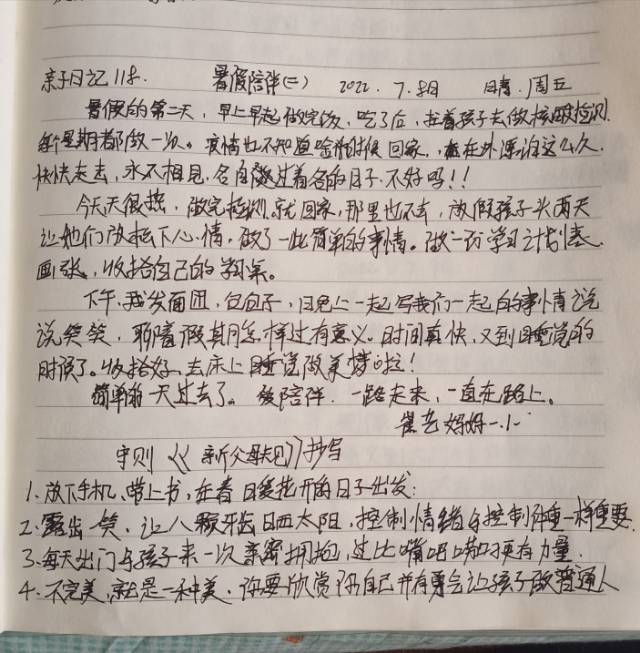 亲子日记118. 暑假陪伴(二) 2022. 7.8日 晴.周五
暑假的第二天，早上早起做完饭，吃了后，拉着孩子去做核酸检测.
每个星期都做一次。疫情也不知道啥时候回家.在外漂泊这么久.
快快走去，永不相见.各自过着各的日子.不好吗！！
今天天很热.做完检测.就回家，那里也不去，放假孩子头两天
让她们放松下心情.做了一些简单的事情。做一份学习计划表.
画张，收拾自己的书桌。
下午.我发面团，包包子，旧晚上一起写我们一起的事情说
说笑笑，聊暑假其怎样过有意义.时间真快，又到睡觉的
时候了。收拾好.去床上睡觉做美梦啦！
简单的一天过去了。爱陪伴.一路走来，一直在路上。
崔艺妈妈
守则《《新父母知》抄写
1.放下手机、带上书，在春暖花开的日子出发：
2.露出笑.让八颗牙齿晒太阳，控制情绪与控制体重一样重要.
3.每天出门与孩子来一次亲密拥抱，过比嘴吧更有力量.
4.不完美，就是一种美.你要欣赏你自己并有勇会让孩子做普通人